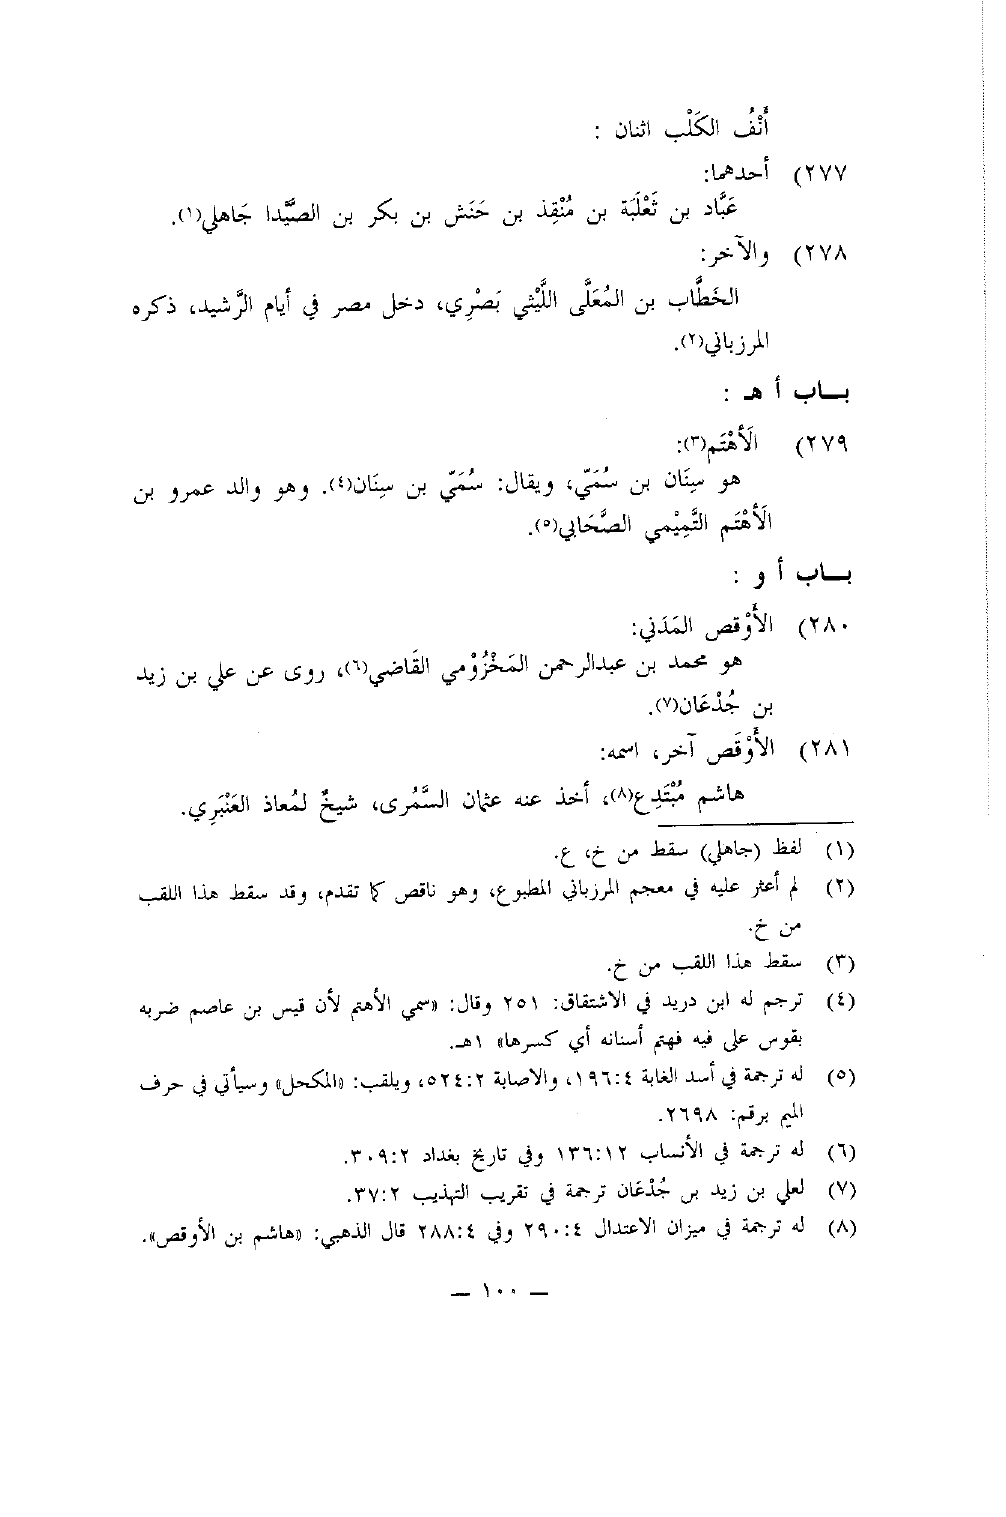 أَنْفُ الكَلْب اثنان :
٢٧٧) أحدهما:
عَبَّاد بن ثَعْلَبَة بن مُنْقِذ بن حَنَش بن بكر بن الصَّيْدا جَاهلي(١).
٢٧٨) والآخر:
الخَطَّاب بن المُعَلَّى اللَّيْثي بَصْرِي، دخل مصر في أيام الرَّشيد، ذكره
المرزباني(٢).
بـاب أ هـ :
٢٧٩) الَأهْتَم(٣):
هو سِنَان بن سُمَيّ، ويقال: سُمَيّ بن سِنَان(٤). وهو والد عمرو بن
الَأهْتَم التَّمِيْمي الصَّحَابي(٥).
بـاب أ و :
٢٨٠) الأَوْقص المَدَني:
هو محمد بن عبدالرحمن المَخْزُوْمي القَاضي(٦)، روى عن علي بن زيد
بن جُدْعَان(٧).
٢٨١) الأَوْقَص آخر، اسمه:
هاشم مُبْتَدِع(٨)، أخذ عنه عثمان السَّمُرى، شيخٌ لمُعاذ العَنْبَرِي.
(١) لفظ (جاهلي) سقط من خ، ع.
(٢) لم أعثر عليه في معجم المرزباني المطبوع، وهو ناقص كما تقدم، وقد سقط هذا اللقب
من خ.
(٣) سقط هذا اللقب من خ.
(٤) ترجم له ابن دريد في الاشتقاق: ٢٥١ وقال: «سمي الأهتم لأن قيس بن عاصم ضربه
بقوس على فيه فهتم أسنانه أي كسرها» ١هـ.
(٥) له ترجمة في أسد الغابة ١٩٦:٤، والاصابة ٥٢٤:٢، ويلقب: «المكحل» وسيأتي في حرف
الميم برقم: ٢٦٩٨.
(٦) له ترجمة في الأنساب ١٣٦:١٢ وفي تاريخ بغداد ٣٠٩:٢.
(٧) لعلي بن زيد بن جُدْعَان ترجمة في تقريب التهذيب ٣٧:٢.
(٨) له ترجمة في ميزان الاعتدال ٢٩٠:٤ وفي ٢٨٨:٤ قال الذهبي: «هاشم بن الأوقص».
— ١٠٠ —